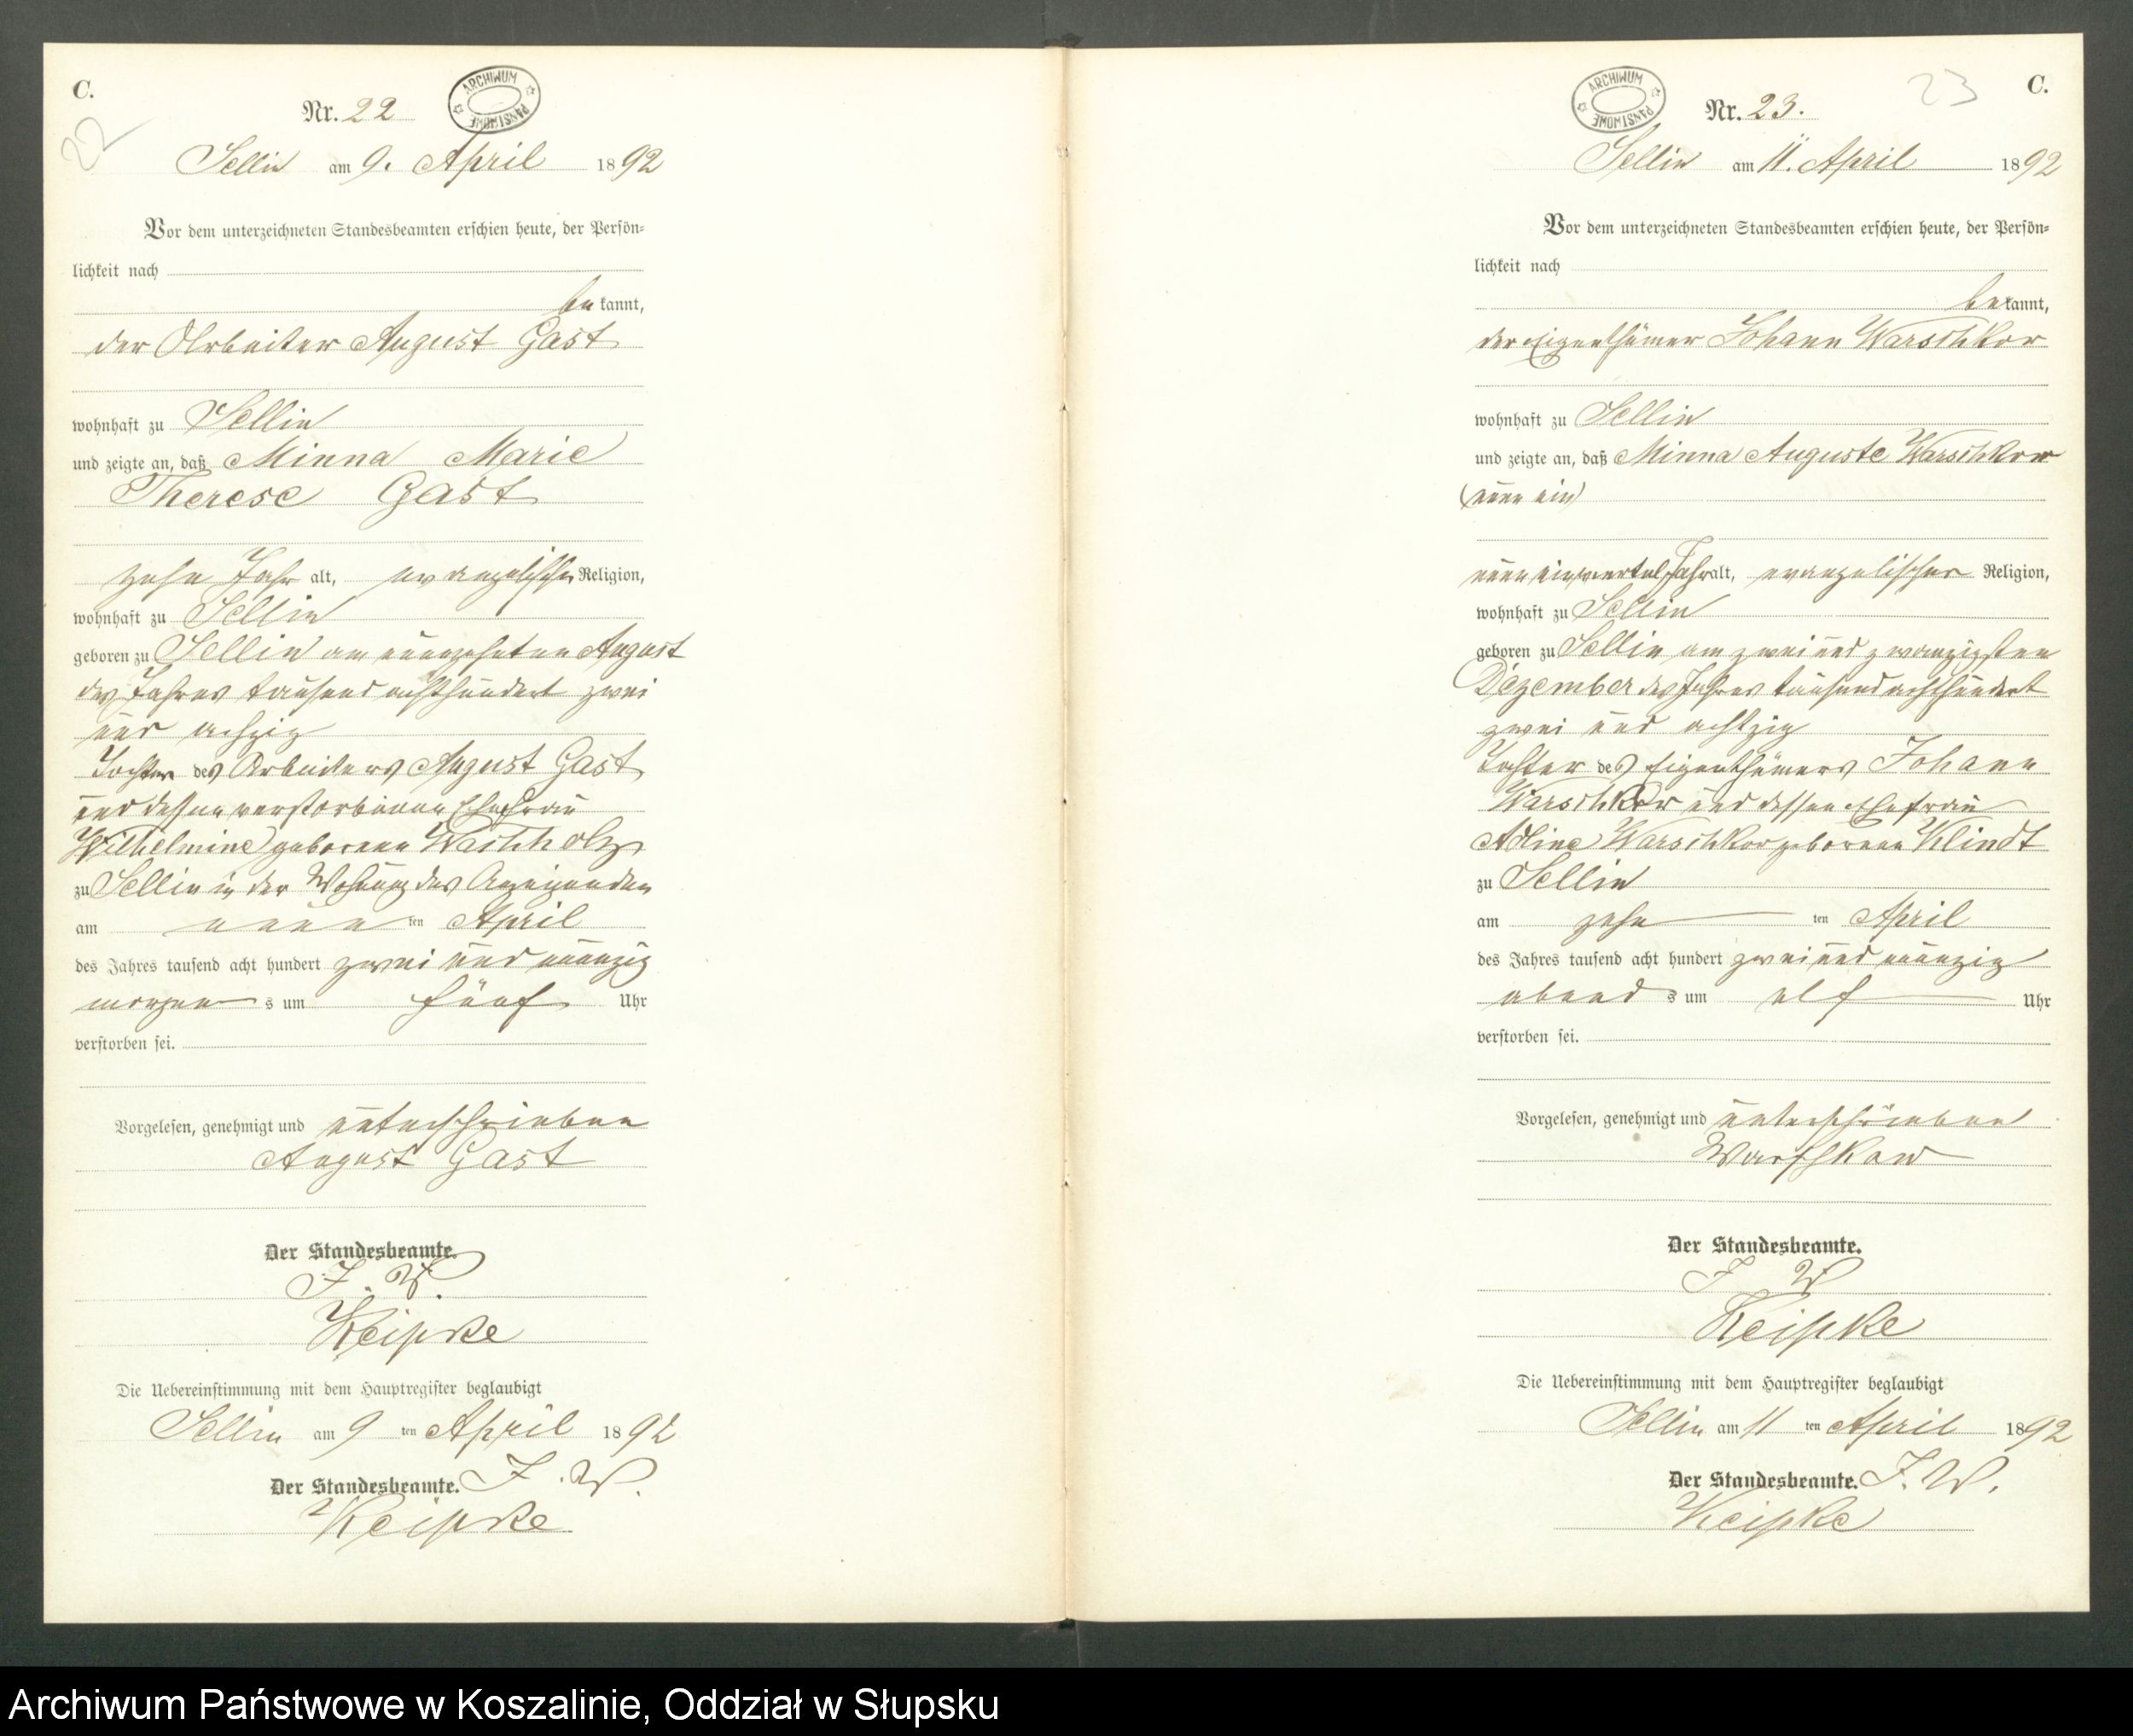 C.
22
Nr. 22
ARCHIWUM PAŃSTWOWE
Sellin am 9. April 1892
Vor dem unterzeichneten Standesbeamten erschien heute, der Persön-
lichkeit nach
be kannt,
der Arbeiter August Gast
wohnhaft zu Sellin
und zeigte an, daß Minna Marie
Therese Gast
zehn Jahr alt, evangelischer Religion,
wohnhaft zu Sellin
geboren zu Sellin am neunzehnten August
des Jahres tausend achthundert zwei
und achzig
Tochter des Arbeiters August Gast
und dessen verstorbenen Ehefrau
Wilhelmine geborene Waschholz
zu Sellin in der Wohnung des Anzeigenden
am neun ten April
des Jahres tausend acht hundert zwei und neunzig
morgen s um fünf Uhr
verstorben sei.
Vorgelesen, genehmigt und unterschrieben
August Gast
Der Standesbeamte.
J. V.
Keipke
Die Uebereinstimmung mit dem Hauptregister beglaubigt
Sellin am 9 ten April 1892
Der Standesbeamte. J. V.
Keipke
C.
23
Nr. 23.
ARCHIWUM PAŃSTWOWE
Sellin am 11. April 1892
Vor dem unterzeichneten Standesbeamten erschien heute, der Persön-
lichkeit nach
bekannt,
der Eigenthümer Johann Warschkow
wohnhaft zu Sellin
und zeigte an, daß Minna Auguste Warschkow
(neun ein)
neun einviertel Jahr alt, evangelischer Religion,
wohnhaft zu Sellin
geboren zu Sellin am zwei und zwanzigsten
Dezember des Jahres tausend achthundert
zwei und achtzig
Tochter des Eigenthümers Johann
Warschkow und dessen Ehefrau
Adline Warschkow geborene Klindt
zu Sellin
am zehn ten April
des Jahres tausend acht hundert zwei und neunzig
abend s um elf Uhr
verstorben sei.
Vorgelesen, genehmigt und unterschrieben
Warschkow
Der Standesbeamte.
J. V.
Keipke
Die Uebereinstimmung mit dem Hauptregister beglaubigt
Sellin am 11 ten April 1892
Der Standesbeamte. J. V.
Keipke
Archiwum Państwowe w Koszalinie, Oddział w Słupsku